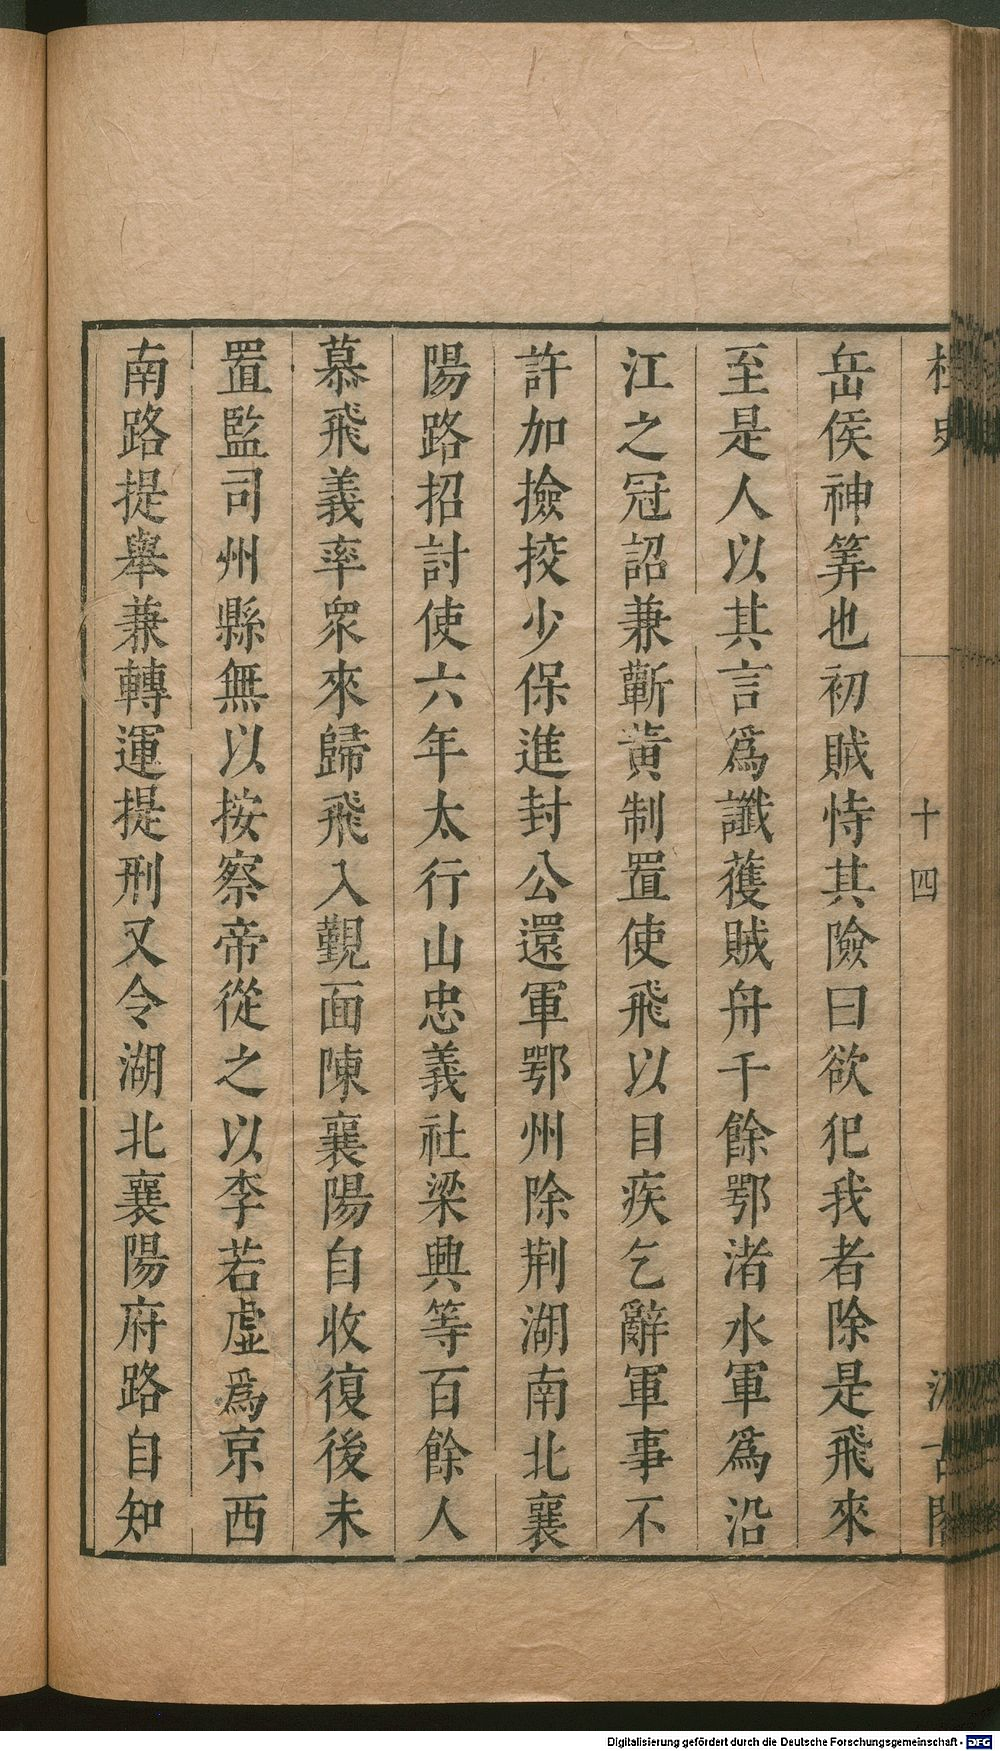 史
十四
岳侯神筭也初賊恃其險曰欲犯我者除是飛來
至是人以其言爲讖獲賊舟千餘鄂渚水軍爲沿
江之冠詔兼蘄黄制置使飛以目疾乞辭軍事不
許加撿挍少保進封公還軍鄂州除荆湖南北襄
陽路招討使六年太行山忠義社梁興等百餘人
慕飛義率衆來歸飛入覲面陳襄陽自收復後未
置監司州縣無以按察帝從之以李若虛爲京西
南路提舉兼轉運提刑又令湖北襄陽府路自知
Digitalisierung gefördert durch die Deutsche Forschungsgemeinschaft - DFG